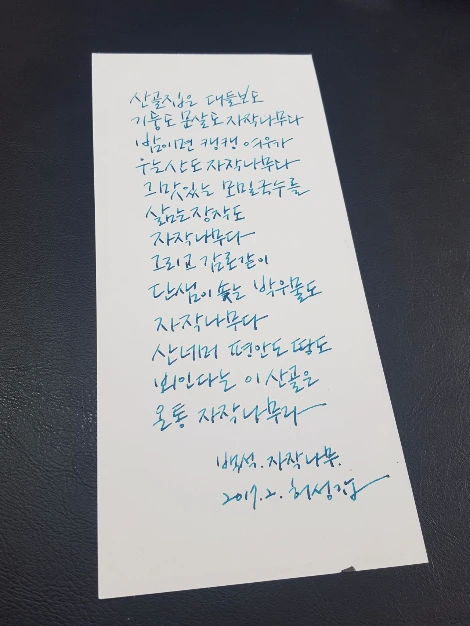 산골집은 대들보도
기둥도 문살도 자작나무다
밤이면 캥캥 여우가
우는 산도 자작나무다
그 맛있는 모밀국수를
삶는 장작도
자작나무다
그리고 감로같이
단샘이 솟는 박우물도
자작나무다
산너머 평안도 땅도
뵈인다는 이 산골은
온통 자작나무다
백석. 자작나무.
2017. 2. 허성갑